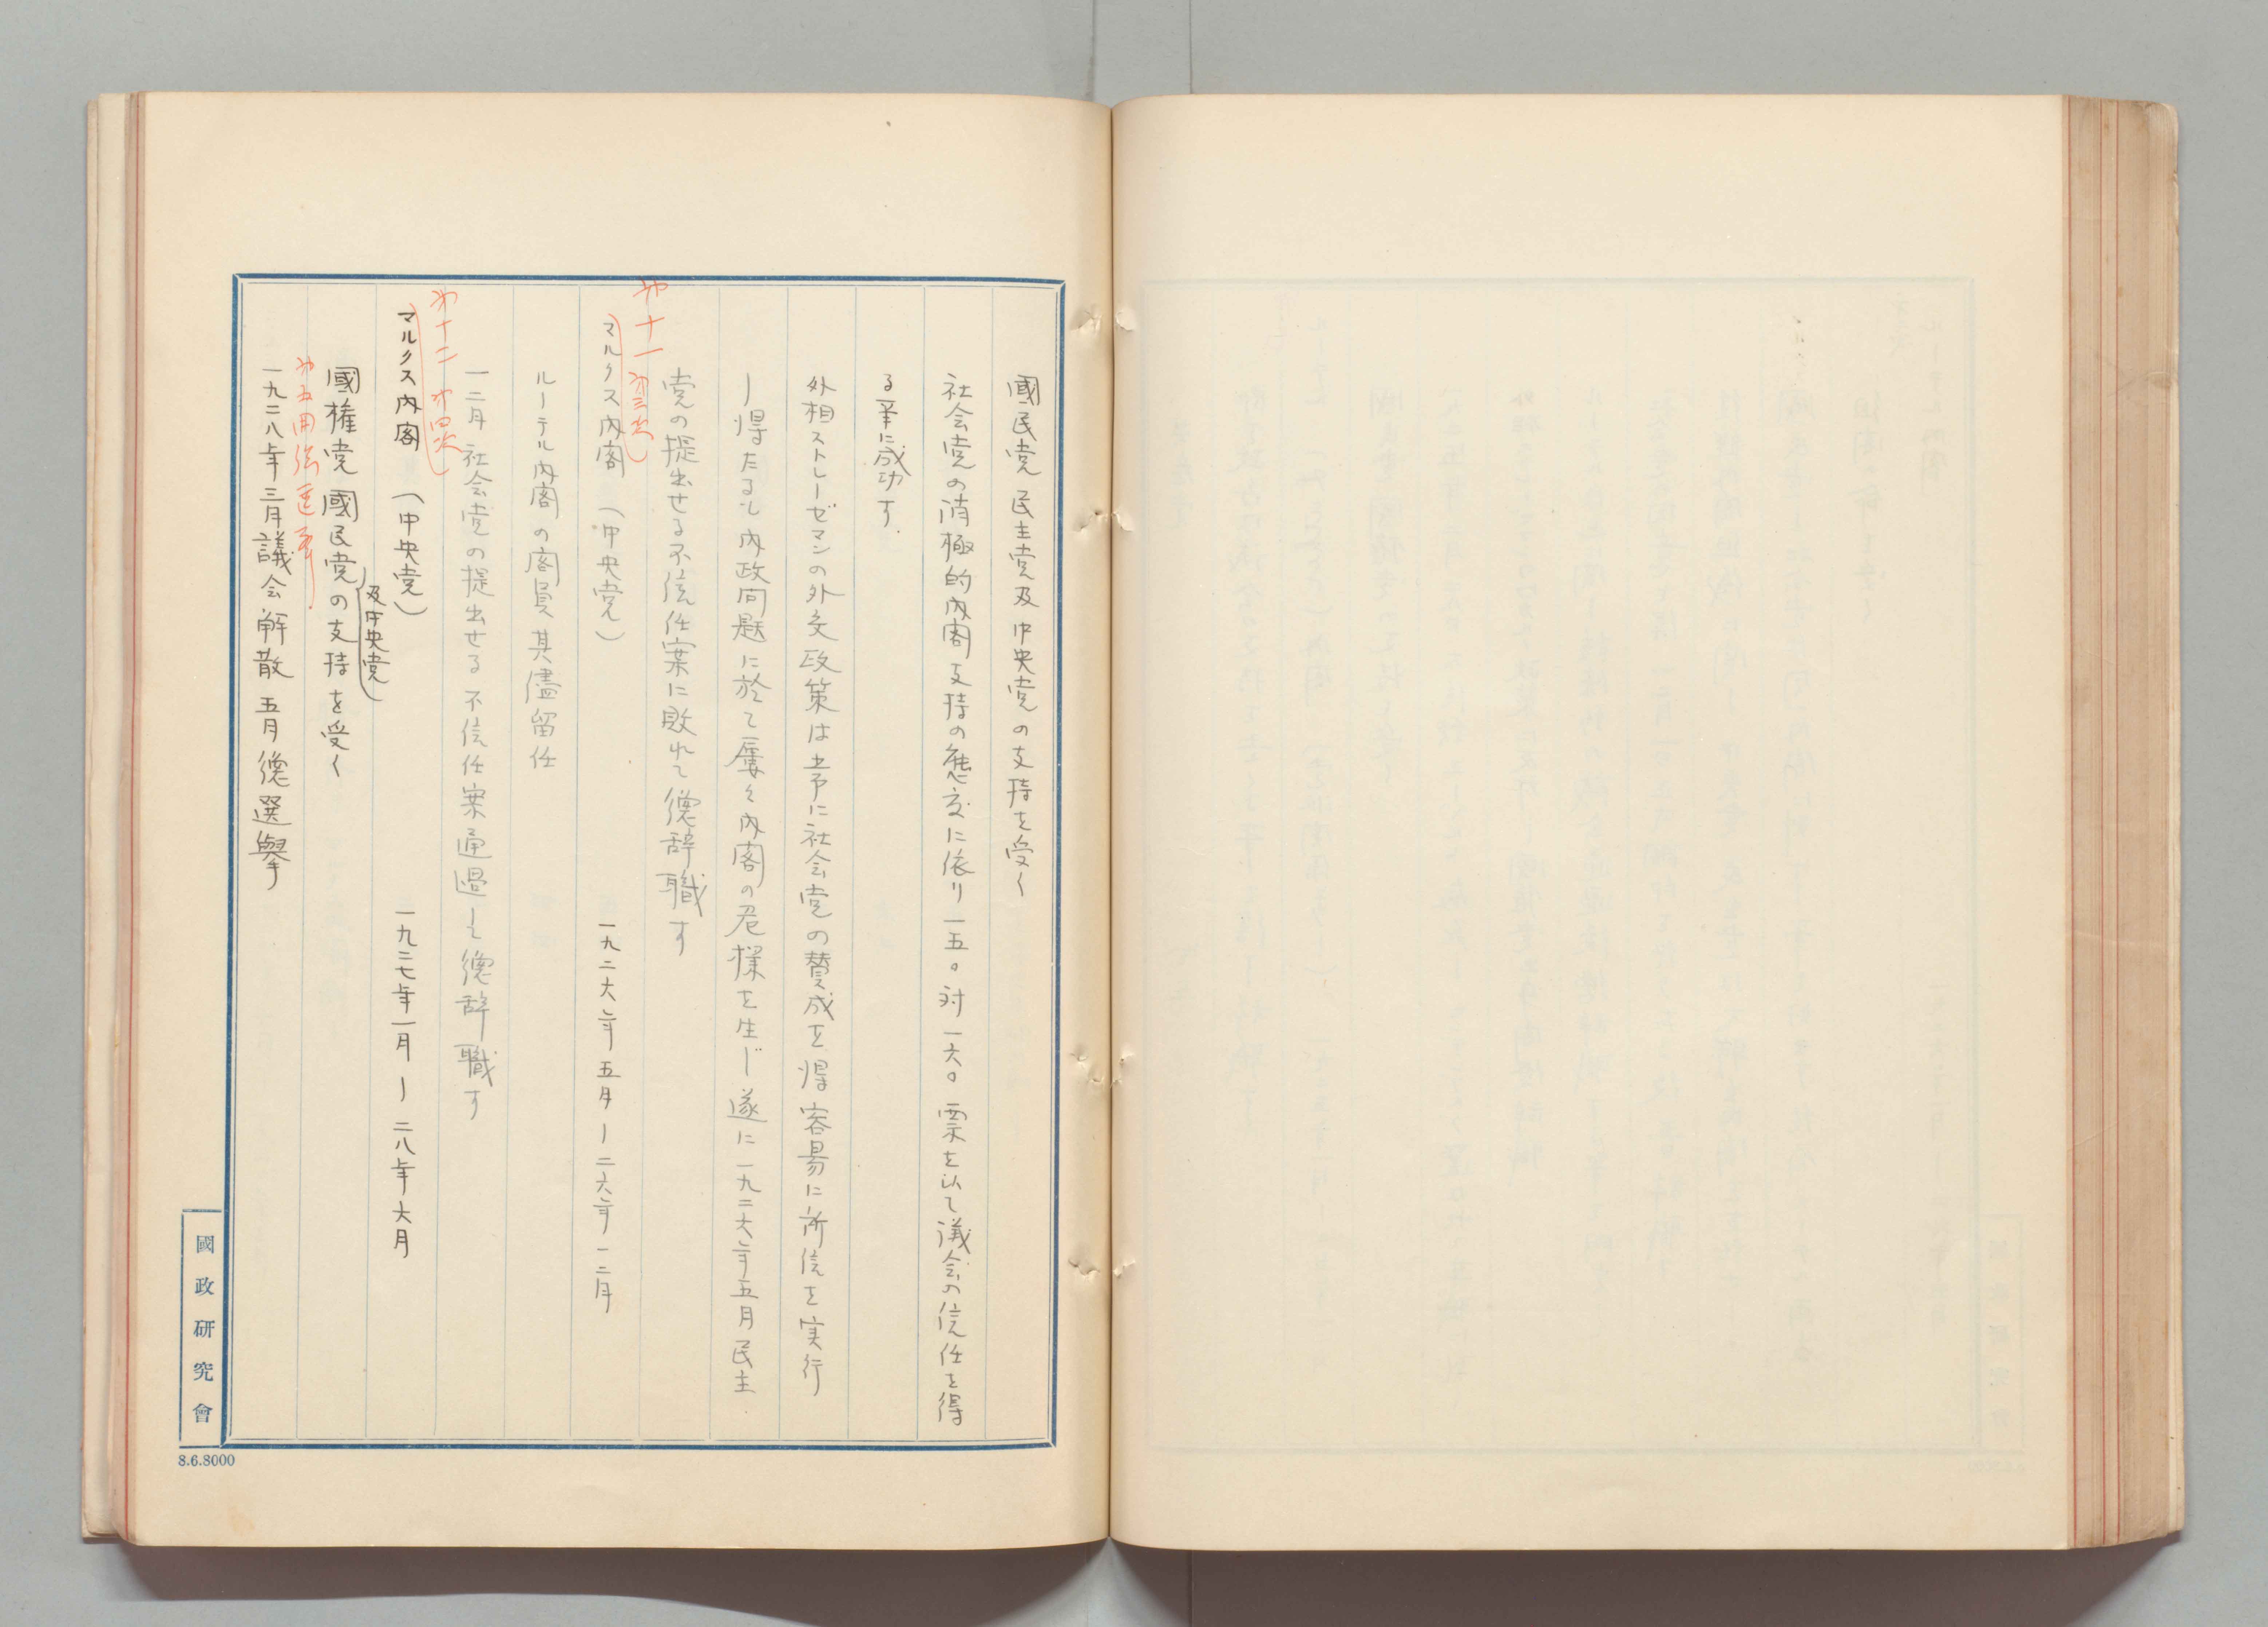 國民党 民主党及中央党の支持を受く
社会党の消極的内閣支持の態度に依り一五〇対一六〇票を以て議会の信任を得
る事に成功す.
外相ストレーゼマンの外交政策は予に社会党の賛成を得容易に所信を実行
し得たるも内政問題に於て屢々内閣の危機を生じ遂に一九二六年五月民主
党の提出せる不信任案に敗れて総辞職す
第十一 第三次
マルクス内閣 (中央党) 一九二六年五月ー二六年一二月
ルーテル内閣の閣員其儘留任
一二月 社会党の提出せる不信任案通過して総辞職す
第十二 第四次
マルクス内閣 (中央党) 一九二七年一月ー二八年六月
國権党 國民党の支持を受く
及中央党
第五
一九二八年三月議会解散 五月総選挙
國政研究會
8.6.8000